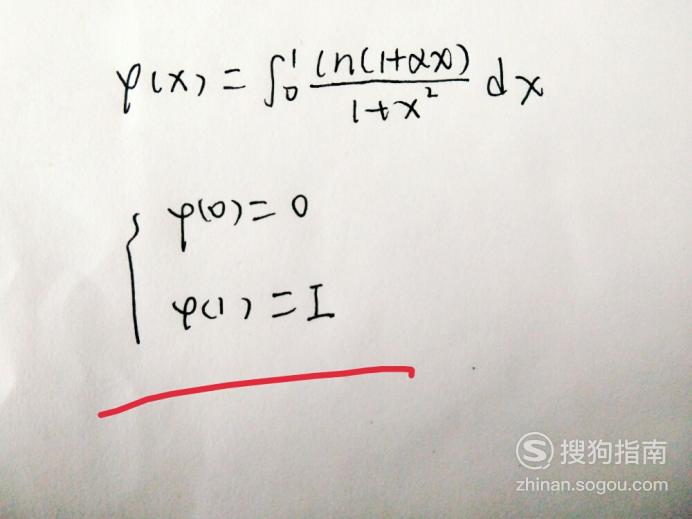 φ(x) = ∫₀¹ ln(1+αx)/(1+x²) dx
φ(0) = 0
φ(1) = I
搜狗指南
zhinan.sogou.com